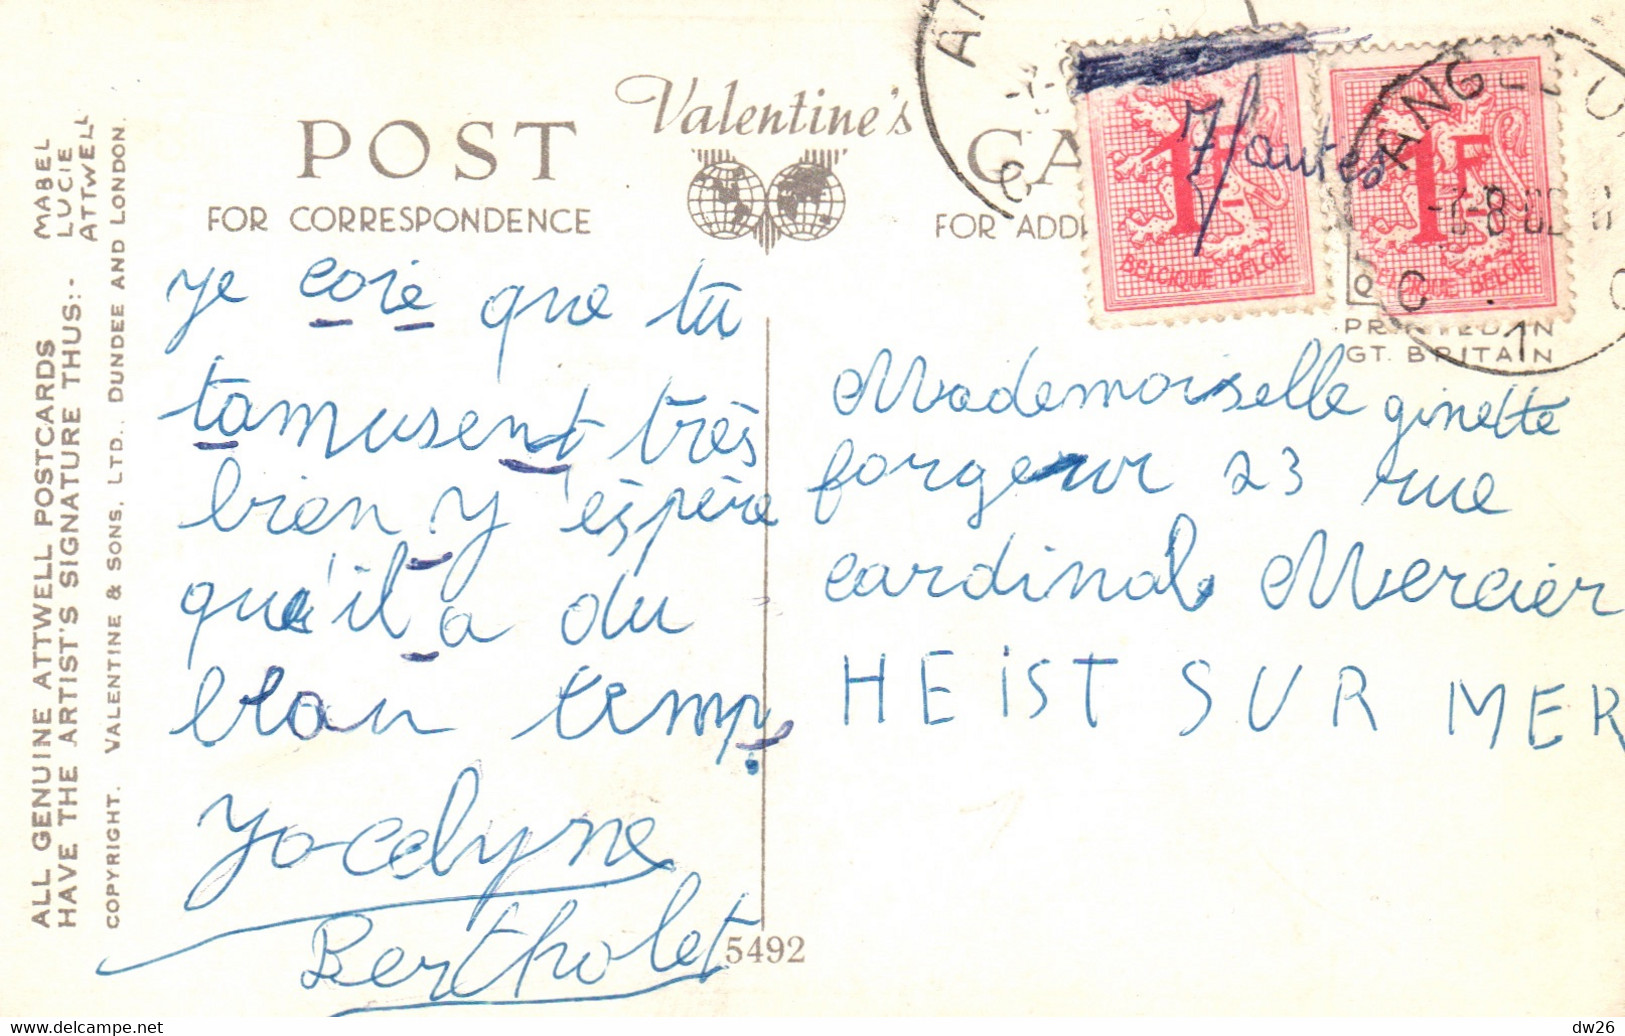 ALL GENUINE ATTWELL POSTCARDS
HAVE THE ARTIST'S SIGNATURE THUS:-
MABEL
LUCIE
ATTWELL
COPYRIGHT. VALENTINE & SONS, LTD., DUNDEE AND LONDON.
Valentine's
POST CA
FOR CORRESPONDENCE
FOR ADD
7 fautes
1F
BELGIQUE BELGIË
1F
BELGIQUE BELGIE
PRINTED IN
GT. BRITAIN
je coie que tu
tamusent très
bien y'éspère
que'il a du
bau temp.
Jocelyne
Bertholet
Mademoiselle ginette
forgeur 23 rue
cardinal Mercier
HEiST SUR MER
5492
delcampe.net
dw26